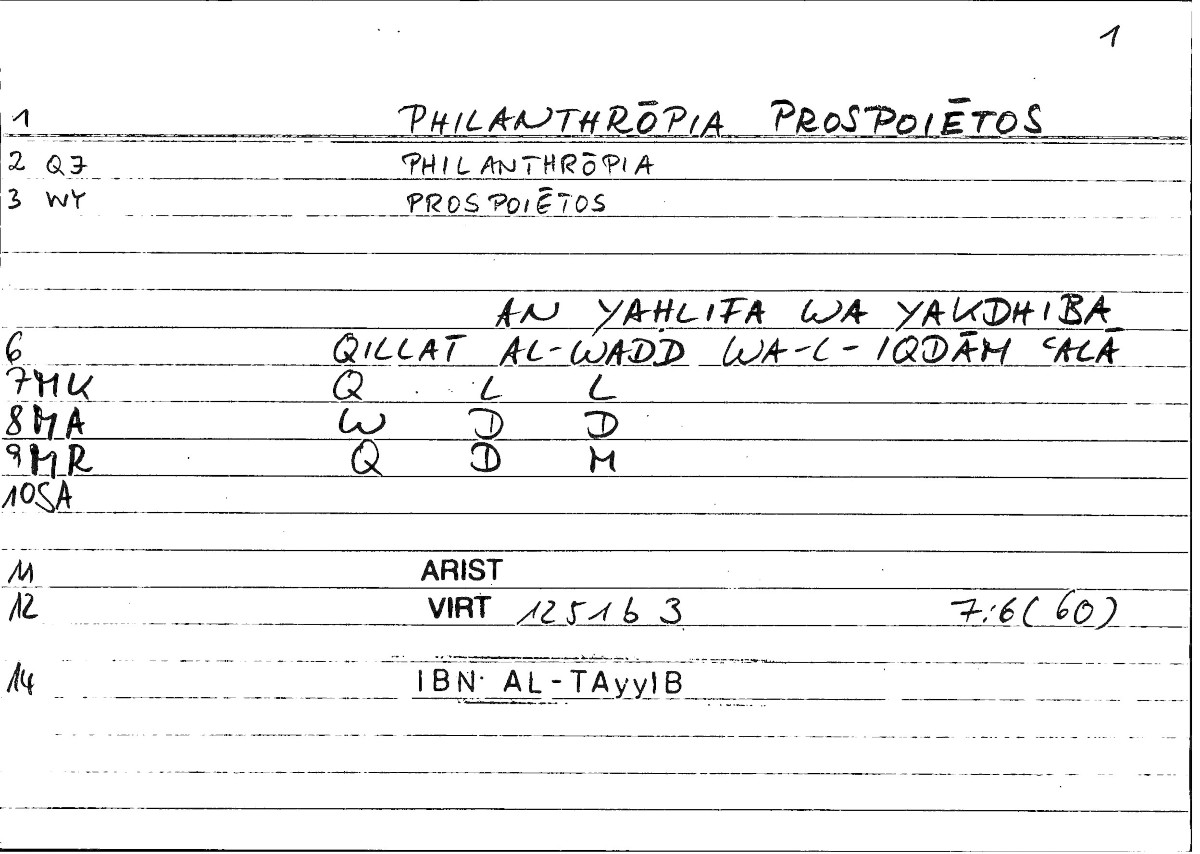 1
1 PHILANTHRŌPIA PROSPOIĒTOS
2 QJ PHILANTHRŌPIA
3 WY PROSPOIĒTOS
AN YAḤLIFA WA YAKDHIBA
6 QILLAT AL-WADD WA-L-IQDĀM ʿALĀ
7MK Q L L
8MA W D D
9MR Q D M
10SA
11 ARIST
12 VIRT 1251b 3 7:6(60)
14 IBN AL-TAyyIB